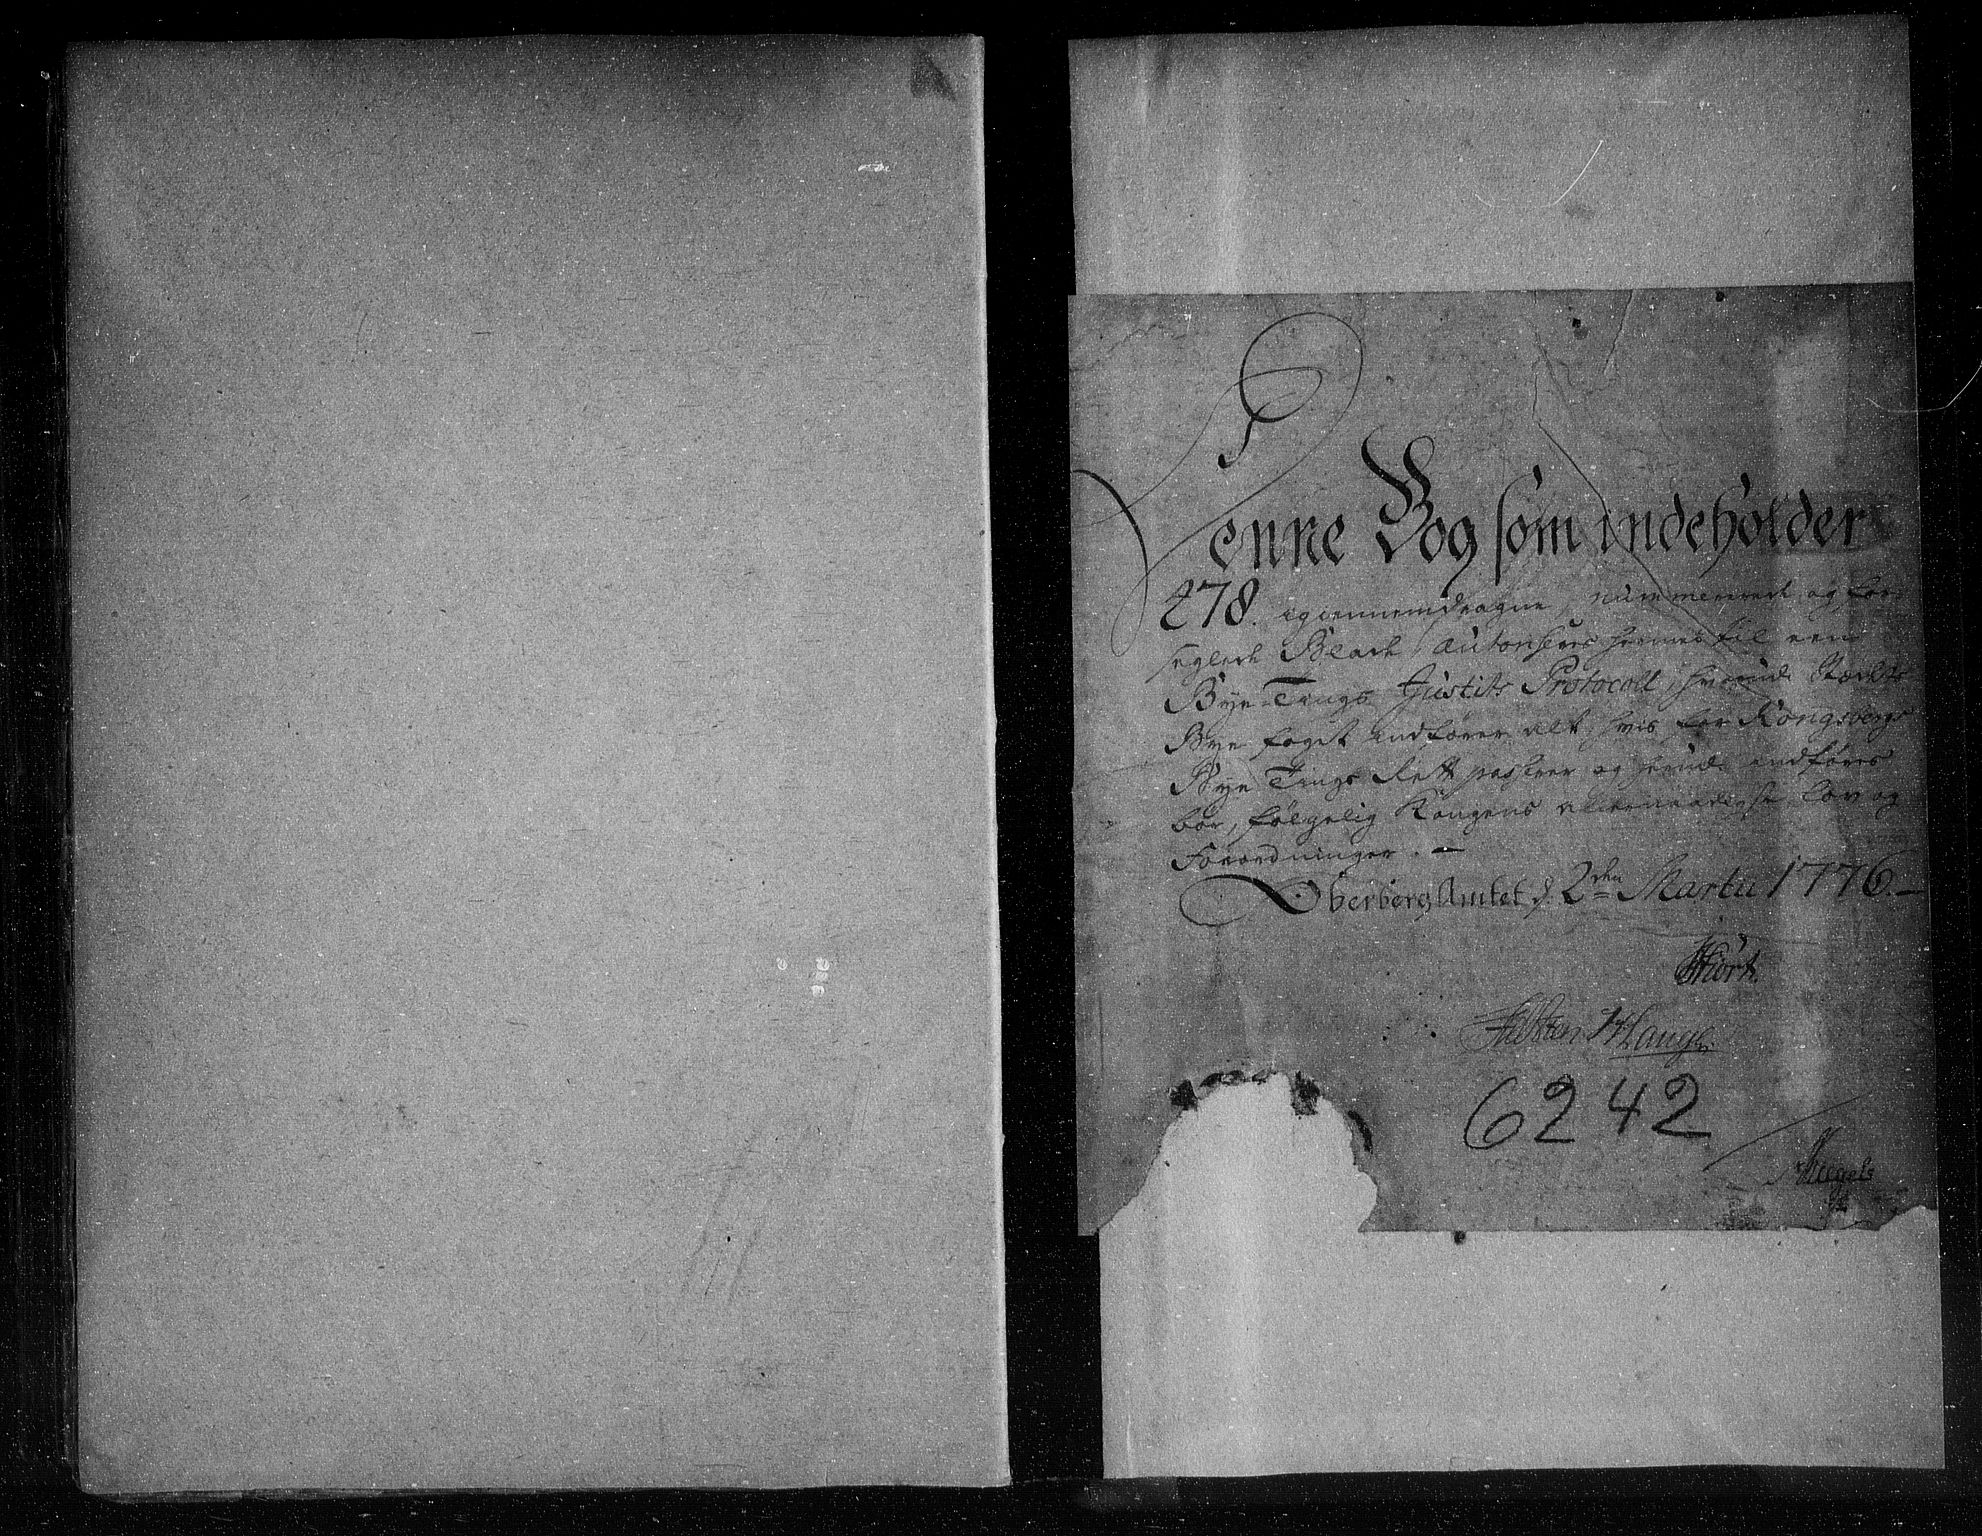 Denne Bog som indeholder
278. igiennemdragne, nummererede og for-
seglede Blade, authoriseres hermed til een
Bye-Tings Justits Protocoll, hvorudi Stædets
Bye foget indfører alt hvis for Kongsbergs
Bye Tings Rett passerer og herudi indføres
bør, følgelig Kongens allernaadigste Lov og
Forordninger. —
Oberberg Amtet d. 2den Martii 1776. —
Hiort.
6242